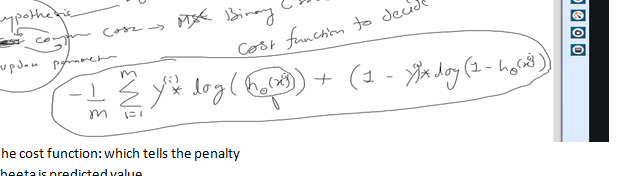 ypothesis
compu cost → MSE Binary C
update parameter cost function to decide
- 1/m Σ_{i=1}^{m} y^{(i)} * log(h_θ(x^{(i)})) + (1 - y^{(i)}) * log(1 - h_θ(x^{(i)}))
he cost function: which tells the penalty
heeta is predicted value